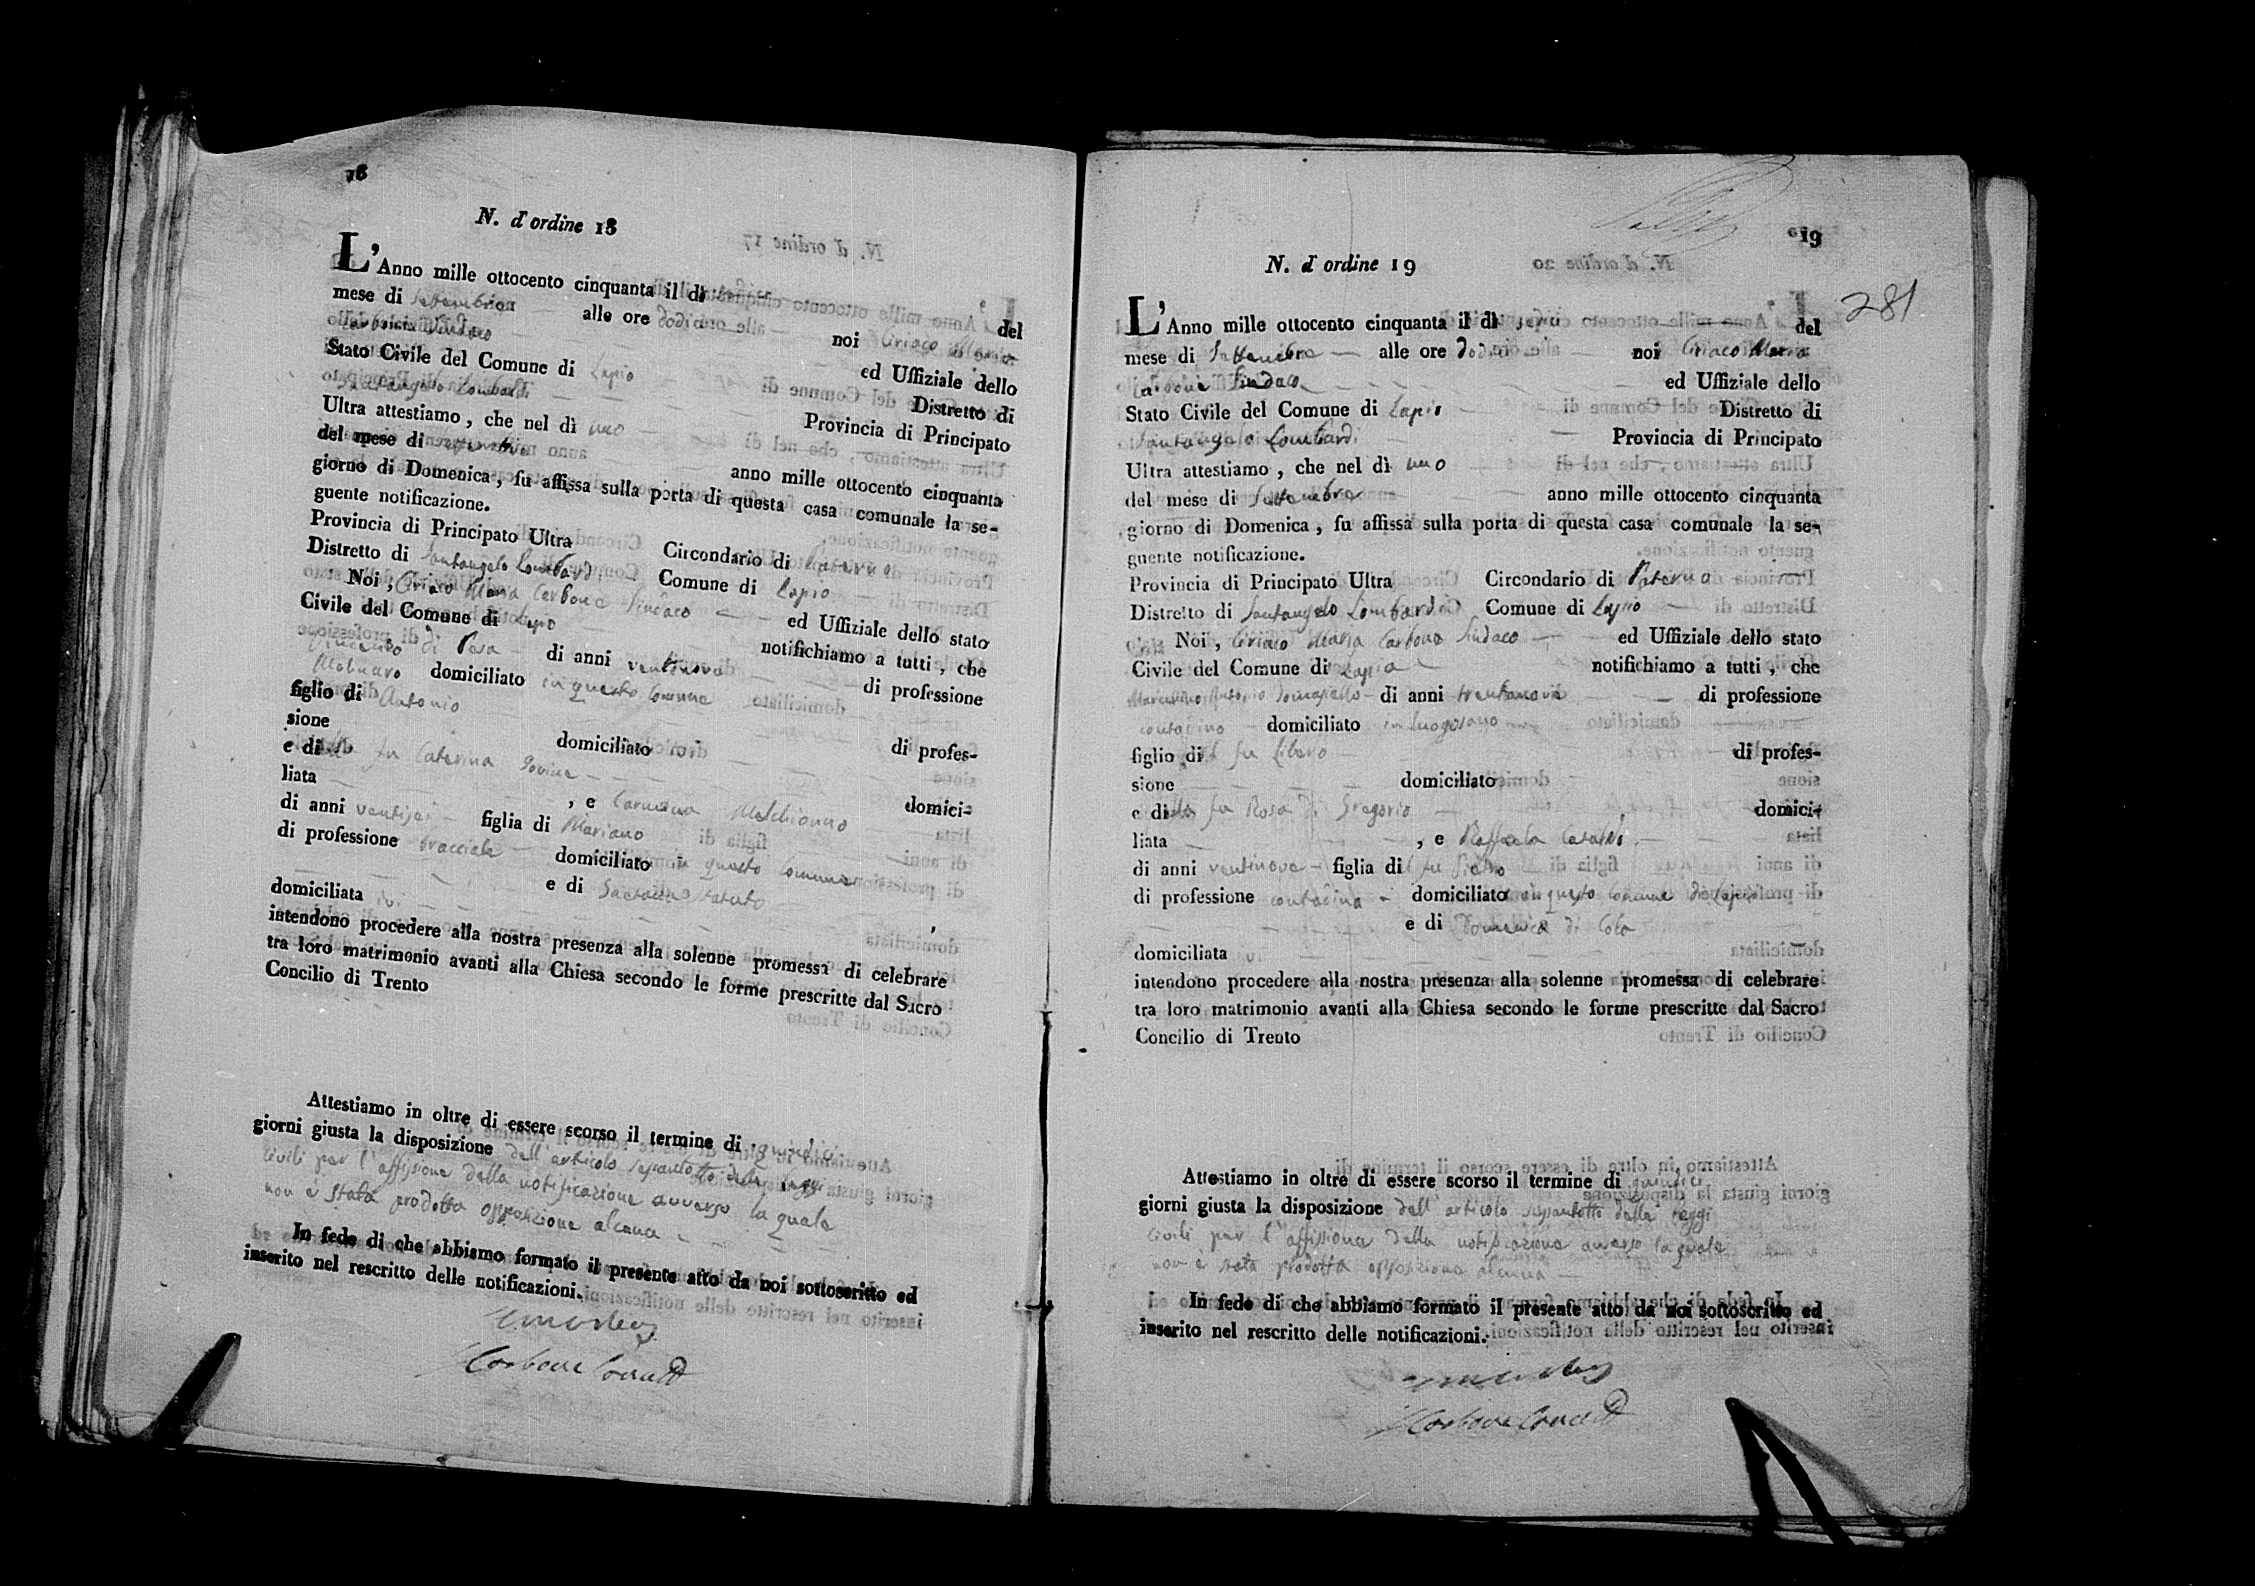 18
N. d'ordine 18
L'Anno mille ottocento cinquanta il dì del
mese di Settembre alle ore dodici noi Ciriaco Maria
Carbone Sindaco ed Uffiziale dello
Stato Civile del Comune di Lapio Distretto di
Santangelo Lombardi Provincia di Principato
Ultra attestiamo, che nel dì uno
del mese di Settembre anno mille ottocento cinquanta
giorno di Domenica, fu affissa sulla porta di questa casa comunale la se-
guente notificazione.
Provincia di Principato Ultra Circondario di Paterno
Distretto di Santangelo Lombardi Comune di Lapio
Noi, Ciriaco Maria Carbone Sindaco ed Uffiziale dello stato
Civile del Comune di Lapio notifichiamo a tutti, che
Vincenzo di Pesa di anni ventinove di professione
Molinaro domiciliato in questo Comune
figlio di Antonio di profes-
sione domiciliato ivi
e di fu Caterina domici-
liata , e Carmina Melchionno
di anni ventisei figlia di Mariano
di professione bracciale domiciliato in questo Comune
e di
domiciliata ivi
intendono procedere alla nostra presenza alla solenne promessa di celebrare
tra loro matrimonio avanti alla Chiesa secondo le forme prescritte dal Sacro
Concilio di Trento
Attestiamo in oltre di essere scorso il termine di quindici
giorni giusta la disposizione dell'articolo sessantotto delle leggi
civili per l'affissione della notificazione avverso la quale
non è stata prodotta opposizione alcuna
In fede di che abbiamo formato il presente atto da noi sottoscritto ed
inserito nel rescritto delle notificazioni.
Carbone
19
281
N. d'ordine 19
L'Anno mille ottocento cinquanta il dì del
mese di Settembre alle ore dodici noi Ciriaco Maria
Carbone Sindaco ed Uffiziale dello
Stato Civile del Comune di Lapio Distretto di
Santangelo Lombardi Provincia di Principato
Ultra attestiamo, che nel dì uno
del mese di Settembre anno mille ottocento cinquanta
giorno di Domenica, fu affissa sulla porta di questa casa comunale la se-
guente notificazione.
Provincia di Principato Ultra Circondario di Paterno
Distretto di Santangelo Lombardi Comune di Lapio
Noi, Ciriaco Maria Carbone Sindaco ed Uffiziale dello stato
Civile del Comune di Lapio notifichiamo a tutti, che
Antonio di anni trentanove di professione
contadino domiciliato in Luogosano
figlio del fu Libero di profes-
sione domiciliato
e della fu Rosa di Gregorio domici-
liata , e Raffaela
di anni ventinove figlia del fu Pietro
di professione contadina domiciliato in questo Comune di Lapio
e di Domenica di Cola
domiciliata ivi
intendono procedere alla nostra presenza alla solenne promessa di celebrare
tra loro matrimonio avanti alla Chiesa secondo le forme prescritte dal Sacro
Concilio di Trento
Attestiamo in oltre di essere scorso il termine di quindici
giorni giusta la disposizione dell'articolo sessantotto delle leggi
civili per l'affissione della notificazione avverso la quale
non è stata prodotta opposizione alcuna
In fede di che abbiamo formato il presente atto da noi sottoscritto ed
inserito nel rescritto delle notificazioni.
Carbone